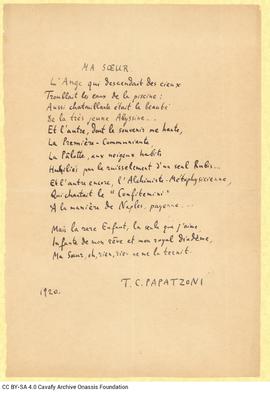 MA SŒUR
L'Ange qui descendait des cieux
Troublait les eaux de la piscine :
Aussi chatouillante était la beauté
De la très jeune Abyssine...
Et l'autre, dont le souvenir me hante,
La Première-Communiante,
La Pâlotte, aux neigeux habits
Habillés par le ruissellement d'un seul Rubis...
Et l'autre encore, l'Alchimiste-Métaphysicienne,
Qui chantait le "Confitemini"
A la manière de Naples, payenne...
Mais la rare Enfant, la seule que j'aime,
Infante de mon rêve et mon royal diadème,
Ma Sœur, oh, rien, rien ne me la ternit.
T. C. PAPATZONI
1920.
CC BY-SA 4.0 Cavafy Archive Onassis Foundation